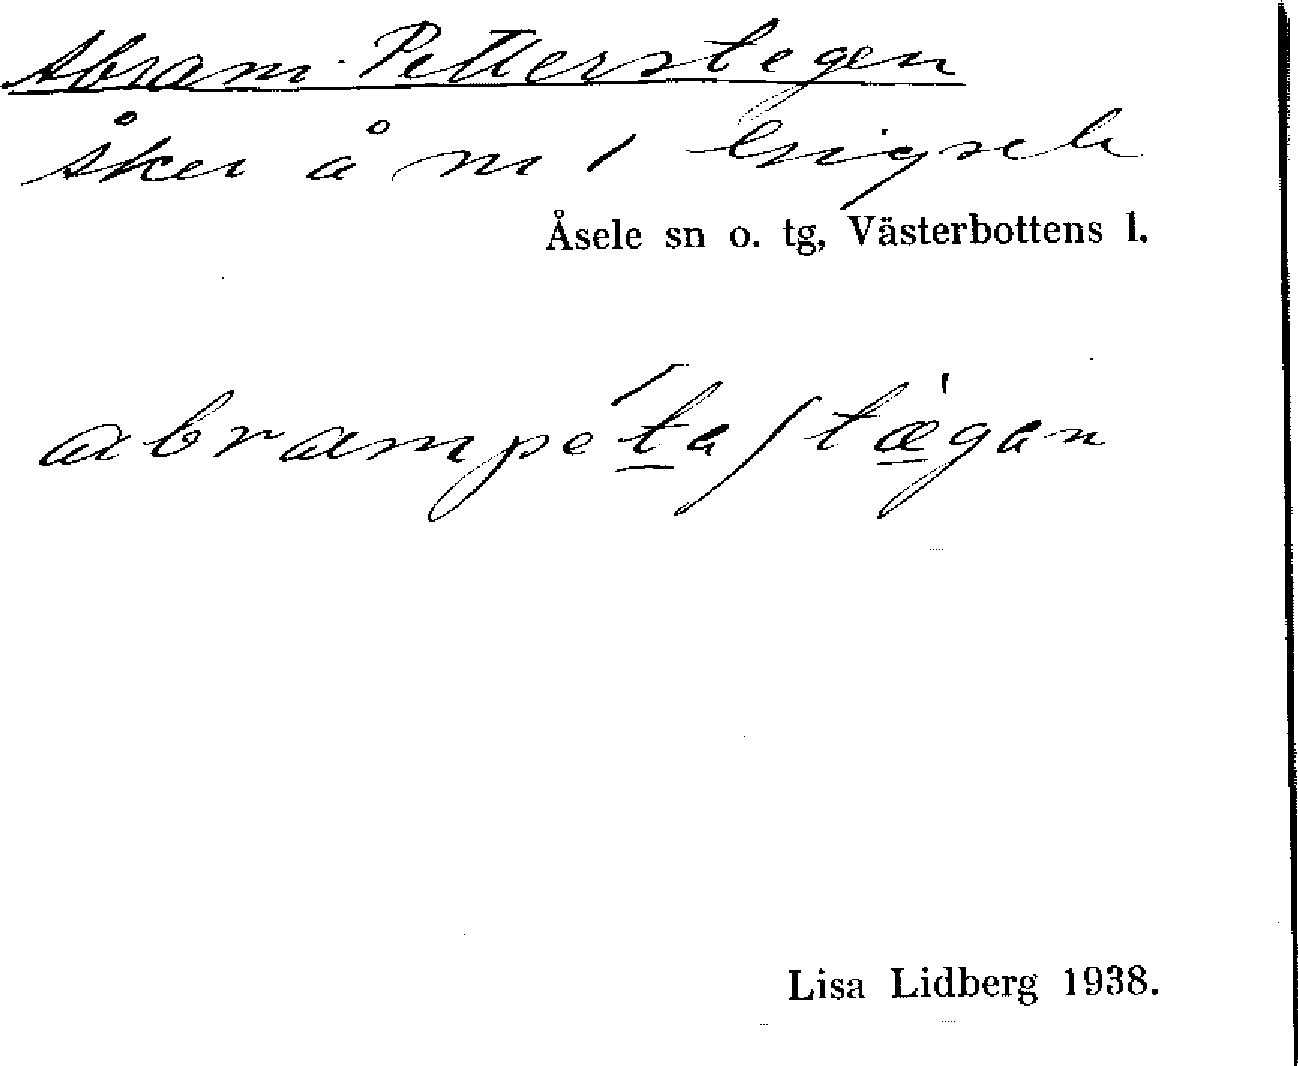 Abram-Petterstegen
åker å nr 1 Gigsele
Åsele sn o. tg, Västerbottens l.
abrampéta/tǽgan
Lisa Lidberg 1938.